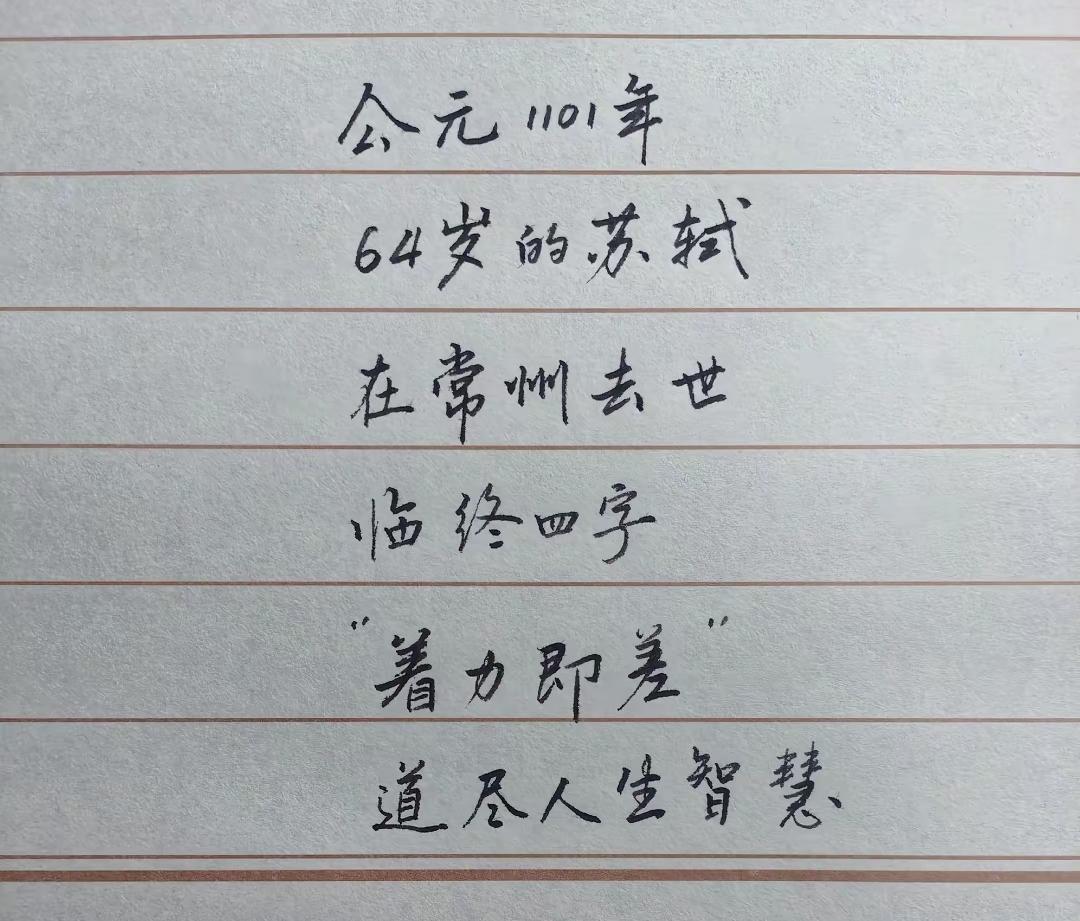 公元1101年
64岁的苏轼
在常州去世
临终四字
“着力即差”
道尽人生智慧